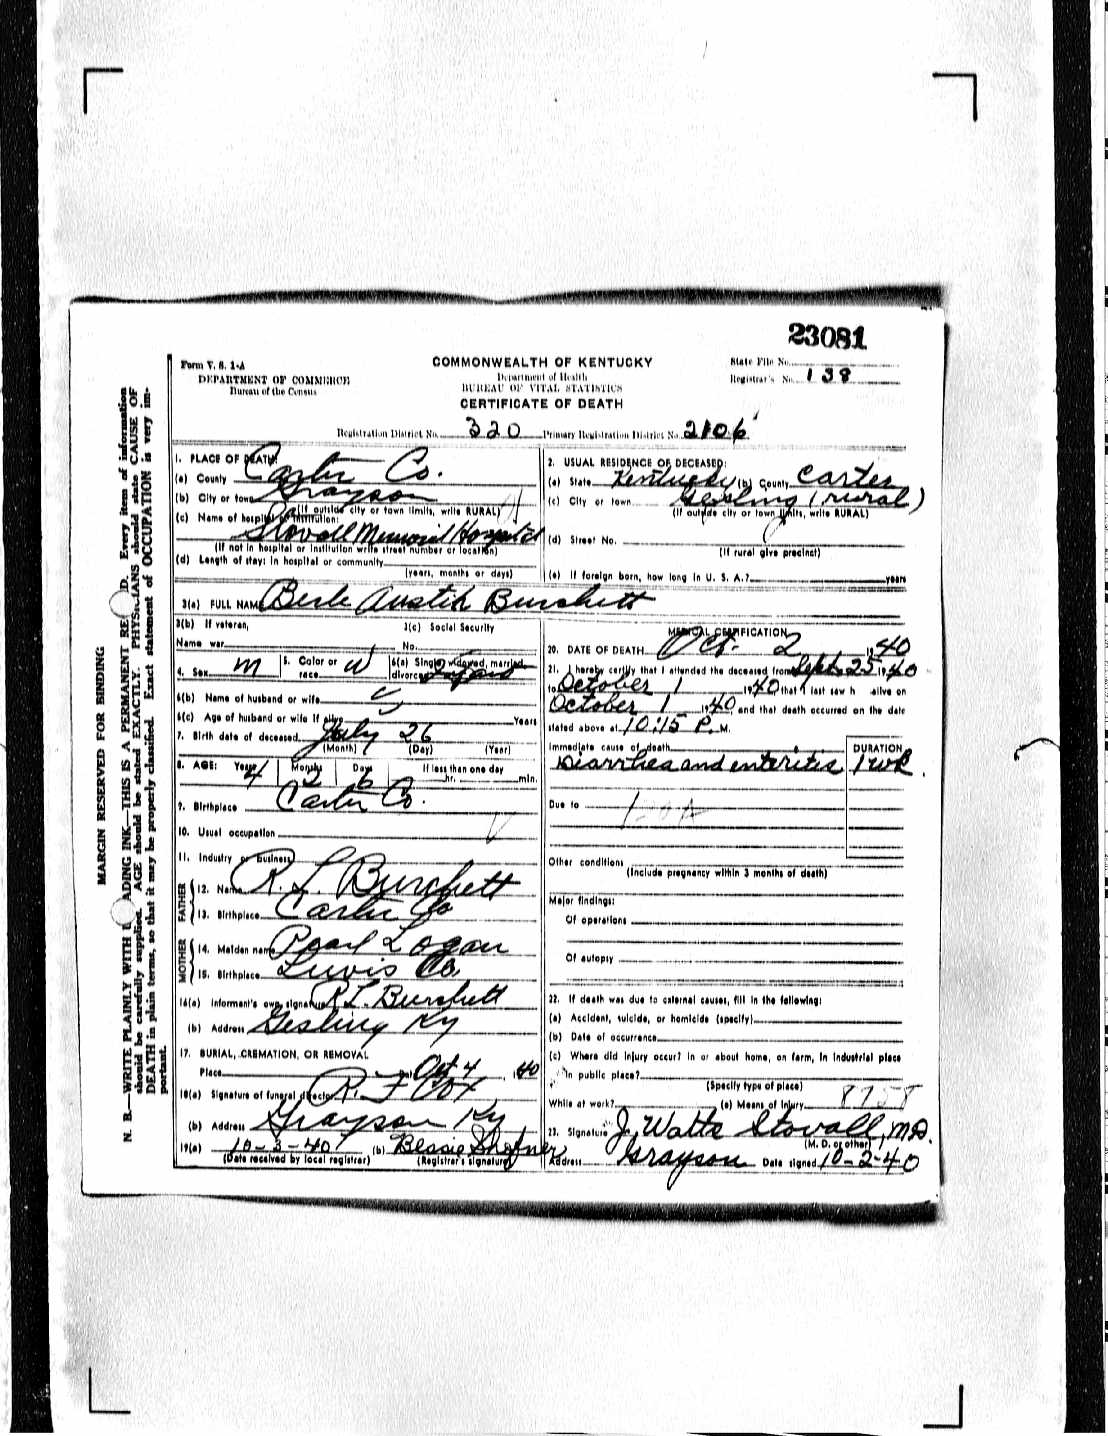 23081
Form V. S. 1-A
DEPARTMENT OF COMMERCE
Bureau of the Census
COMMONWEALTH OF KENTUCKY
Department of Health
BUREAU OF VITAL STATISTICS
CERTIFICATE OF DEATH
State File No.
Registrar's No. 138
Registration District No. 320 Primary Registration District No. 2106
1. PLACE OF DEATH:
(a) County Carter Co.
(b) City or town Grayson
(If outside city or town limits, write RURAL)
(c) Name of hospital or institution:
Stovall Memorial Hospital
(If not in hospital or institution write street number or location)
(d) Length of stay: In hospital or community
(years, months or days)
2. USUAL RESIDENCE OF DECEASED:
(a) State Kentucky (b) County Carter
(c) City or town Gesling (rural)
(If outside city or town limits, write RURAL)
(d) Street No.
(If rural give precinct)
(e) If foreign born, how long in U. S. A.? years
3(a) FULL NAME Berle Austin Burchett
3(b) If veteran, 3(c) Social Security
Name war No.
4. Sex M 5. Color or race W 6(a) Single, widowed, married, divorced Infant
6(b) Name of husband or wife
6(c) Age of husband or wife if alive Years
7. Birth date of deceased July 26
(Month) (Day) (Year)
8. AGE: Years 4 Months 2 Days 6 If less than one day
hr. min.
9. Birthplace Carter Co.
10. Usual occupation
11. Industry or business
FATHER
12. Name R. L. Burchett
13. Birthplace Carter Co
MOTHER
14. Maiden name Pearl Logan
15. Birthplace Lewis Co.
16(a) Informant's own signature R L. Burchett
(b) Address Gesling Ky
17. BURIAL, CREMATION, OR REMOVAL
Place Oct 4, 40
18(a) Signature of funeral director R. F Cox
(b) Address Grayson Ky
19(a) 10-3-40 (b) Bessie
(Date received by local registrar) (Registrar's signature)
MEDICAL CERTIFICATION
20. DATE OF DEATH Oct. 2 1940
21. I hereby certify that I attended the deceased from Sept. 25 1940
to October 1 1940 that I last saw h alive on
October 1 1940 and that death occurred on the date
stated above at 10:15 P. M.
Immediate cause of death DURATION
Diarrhea and enteritis 1 wk.
Due to
Other conditions
(Include pregnancy within 3 months of death)
Major findings:
Of operations
Of autopsy
22. If death was due to external causes, fill in the following:
(a) Accident, suicide, or homicide (specify)
(b) Date of occurrence
(c) Where did injury occur? In or about home, on farm, in industrial place
in public place?
(Specify type of place)
While at work? (e) Means of Injury
23. Signature J. Watts Stovall, M.D.
(M. D. or other)
Address Grayson Date signed 10-2-40
MARGIN RESERVED FOR BINDING
N. B.—WRITE PLAINLY WITH ADING INK—THIS IS A PERMANENT RE D. Every item of information
should be carefully supplied. AGE should be stated EXACTLY. PHYSICIANS should state CAUSE OF
DEATH in plain terms, so that it may be properly classified. Exact statement of OCCUPATION is very im-
portant.